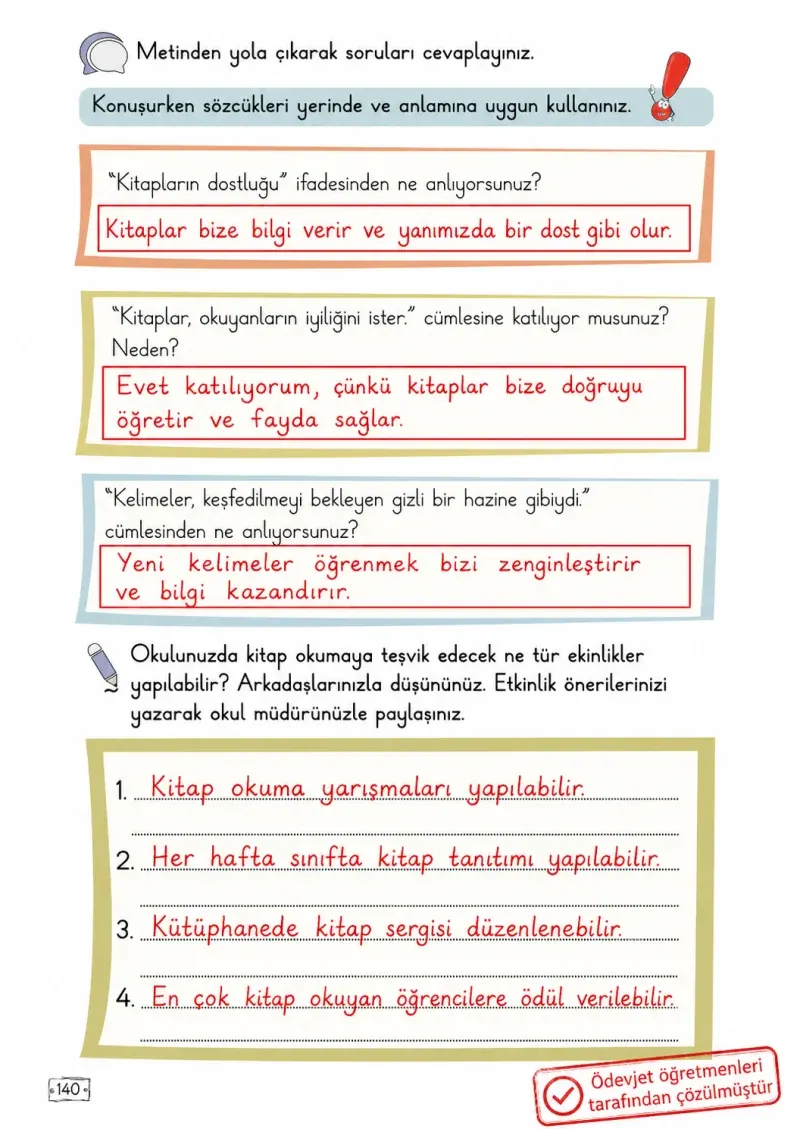 Metinden yola çıkarak soruları cevaplayınız.
Konuşurken sözcükleri yerinde ve anlamına uygun kullanınız.
"Kitapların dostluğu" ifadesinden ne anlıyorsunuz?
Kitaplar bize bilgi verir ve yanımızda bir dost gibi olur.
"Kitaplar, okuyanların iyiliğini ister." cümlesine katılıyor musunuz?
Neden?
Evet katılıyorum, çünkü kitaplar bize doğruyu
öğretir ve fayda sağlar.
"Kelimeler, keşfedilmeyi bekleyen gizli bir hazine gibiydi."
cümlesinden ne anlıyorsunuz?
Yeni kelimeler öğrenmek bizi zenginleştirir
ve bilgi kazandırır.
Okulunuzda kitap okumaya teşvik edecek ne tür ekinlikler
yapılabilir? Arkadaşlarınızla düşününüz. Etkinlik önerilerinizi
yazarak okul müdürünüzle paylaşınız.
1. Kitap okuma yarışmaları yapılabilir.
2. Her hafta sınıfta kitap tanıtımı yapılabilir.
3. Kütüphanede kitap sergisi düzenlenebilir.
4. En çok kitap okuyan öğrencilere ödül verilebilir.
140
Ödevjet öğretmenleri
tarafından çözülmüştür